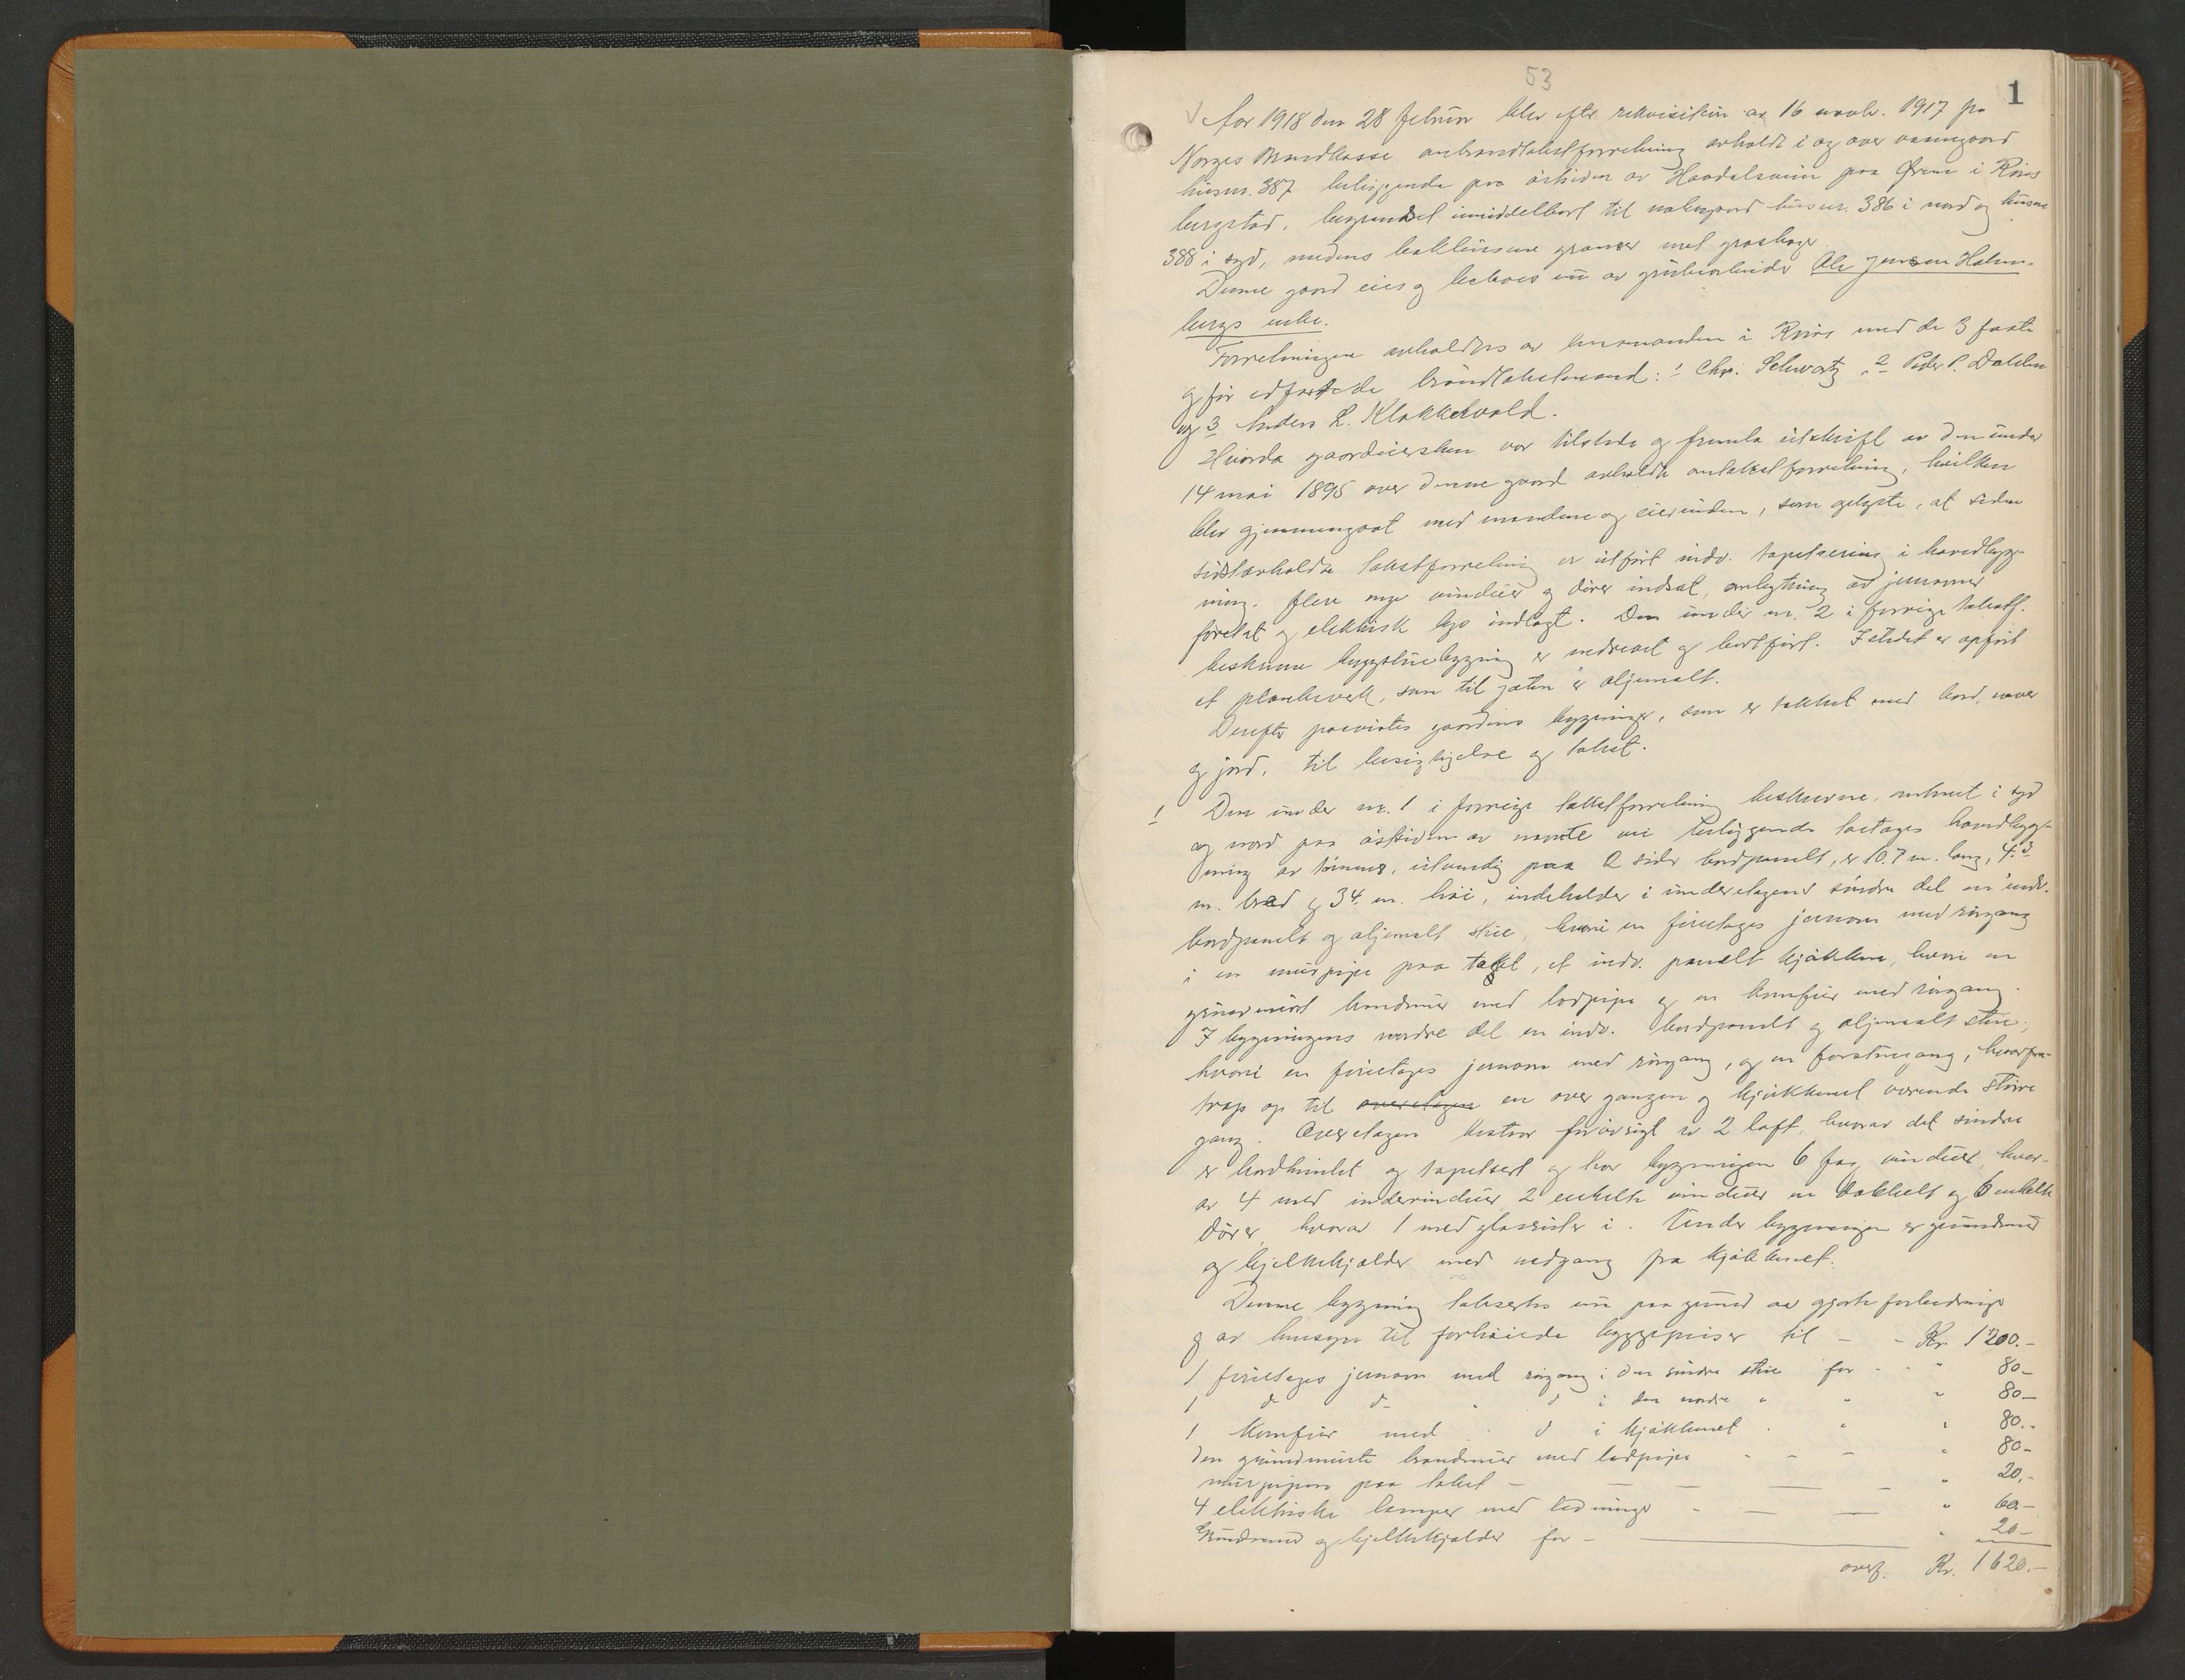 53
1
Aar 1918 den 28 februar blev efter rekvisition av 16 novbr. 1917 fra
Norges Brandkasse ombrandtakstforretning avholdt i og over vaaningsgaard
husnr. 387 beliggende paa østsiden av Haadalsveien paa Øren i Røros
bergstad, begrændset imiddelbart til nabogaard husnr. 386 i nord og husnr
388 i syd, medens bakhusene grænser mot græshage.
Denne gaard eies og beboes nu av grubearbeider Ole Jensen Holm-
bergs enke.
Forretningen avholdtes av lensmanden i Røros med de 3 faste
og før edfæstede brandtakstmænd: 1 Chr. Schwartz, 2 Peder P. Dahlen
og 3 Anders L. Klokkervold.
Hvorda gaardeiersken var tilstede og fremla utskrift av den under
14 mai 1895 over denne gaard avholdte omtakstforretning, hvilken
blev gjennemgaat med mændene og eierinden, som oplyste, at siden
sidstavholdte takstforretning er utført indv. tapetsering i hovedbyg-
ning. flere nye vinduer og dører indsat, ombytning av jernovner
foretat og elektrisk lys indlagt. Den under nr. 2 i forrige takstf.
beskrevne bryggstuebygning er nedrevet og bortført. Istedet er opført
et plankeverk, som til gaten er oljemalt.
Derefter paavistes gaardens bygninger, som er tækket med bord, næver
og jord, til besigtigelse og takst.
1 Den under nr. 1 i forrige takstforretning beskrevne, anbragt i syd
og nord paa østsiden av nævnte vei beliggende toetages hovedbyg-
ning av tømmer, utvendig paa 2 sider bordpanelt, er 10.7 m. lang, 4.3
m. bred og 34. m. høi, indeholder i underetagens søndre del en indv.
bordpanelt og oljemalt stue, hvori en fireetages jernovn med rørgang
i en murpipe paa taket, et indv. panelt kjøkken, hvori en
grundmuret brandmur med lodpipe og en komfur med rørgang.
I bygningens nordre del en indv. bordpanelt og oljemalt stue;
hvori en fireetages jernovn med rørgang, og en forstuegang, hvorfra
trap op til overetagen en over gangen og kjøkkenet værende større
gang. Overetagen bestaar forøvrigt av 2 loft, hvorav det søndre
er bordhimlet og tapetsert og har bygningen 6 fag vinduer, hvor-
av 4 med indervinduer, 2 enkelte vinduer en dobbelt og 6 enkelte
dører, hvorav 1 med glasruter i. Under bygningen er grundmur
og bjelkekjælder med nedgang fra kjøkkenet.
Denne bygning takseres nu paa grund av gjorte forbedringer
og av hensyn til forhøiede byggepriser til - - Kr. 1200.-
1 fireetages jernovn med rørgang i den søndre stue for - - " 80-
1 d- d- " d i den nordre " " " 80-
1 Komfur med d i kjøkkenet " " " 80.-
den grundmurte brandmur med lodpipe - - - " 80-
murpipen paa taket - - - - " 20.-
4 elektriske lamper med ledninger - - - " 60.-
Grundmur og bjelkekjælder for - " 20-
overf. Kr. 1620.-